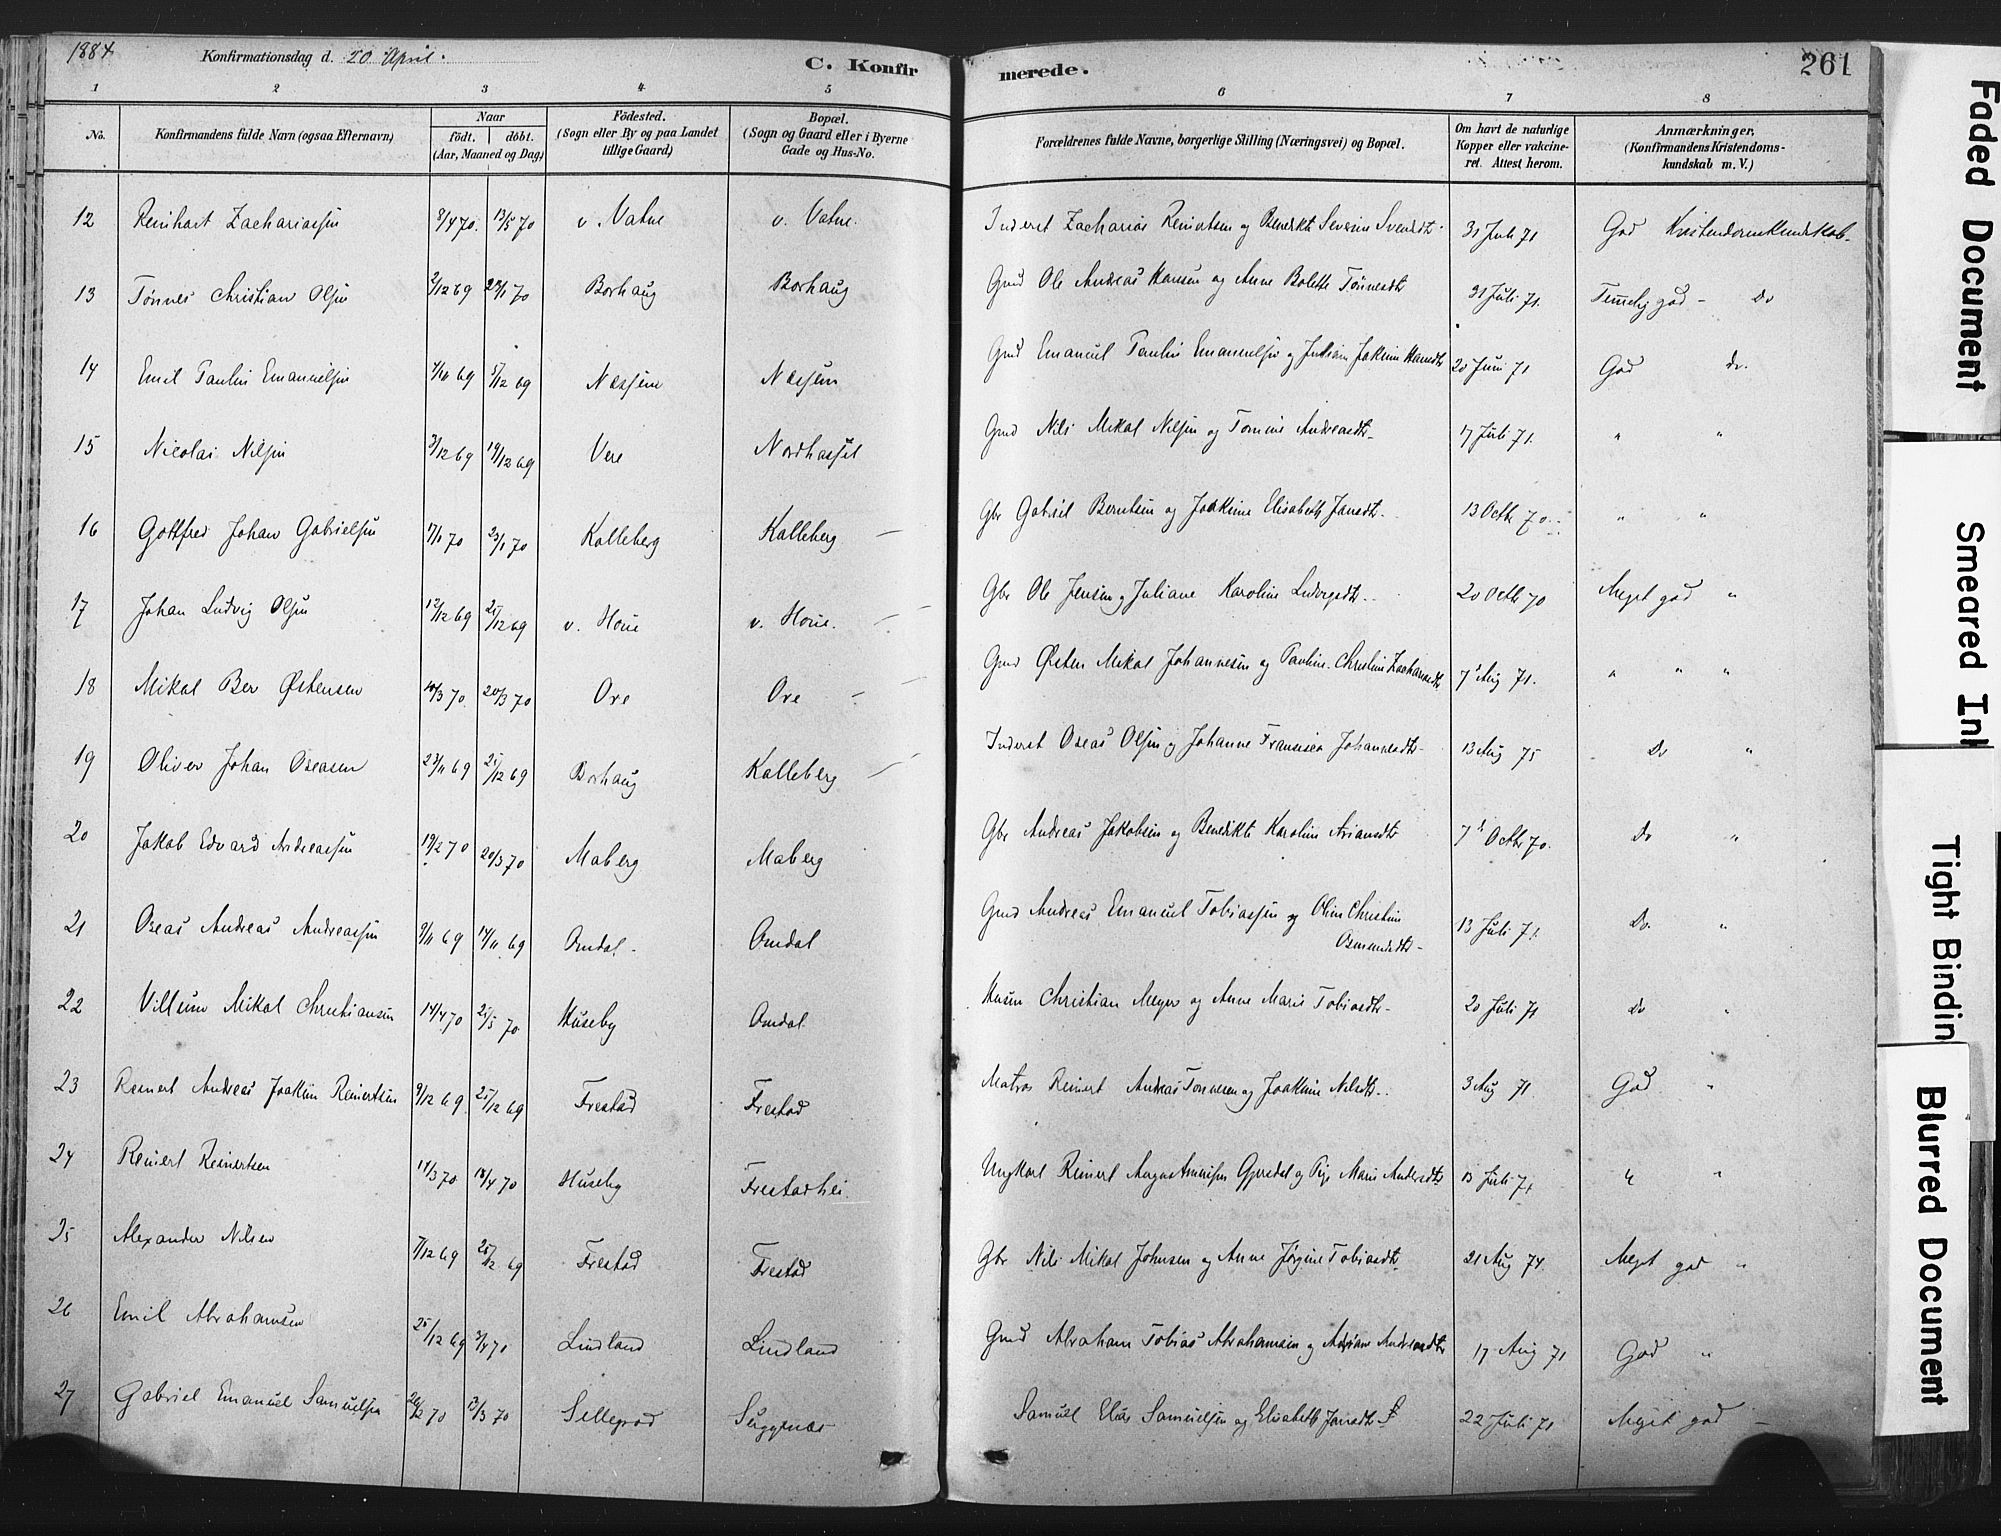 1884 Konfirmationsdag d. 20 April. C. Konfirmerede. 261
1 2 3 4 5 6 7 8
No. Konfirmandens fulde Navn (ogsaa Efternavn) Naar født. døbt. (Aar, Maaned og Dag) Fødested. (Sogn eller By og paa Landet tillige Gaard) Bopæl. (Sogn og Gaard eller i Byerne Gade og Hus-No. Forældrenes fulde Navne, borgerlige Stilling (Næringsvei) og Bopæl. Om havt de naturlige Kopper eller vakcineret. Attest herom. Anmærkninger, (Konfirmandens Kristendomskundskab m. V.)
12 Reinhart Zachariassen 8/4 70. 13/5 70 v. Vatne v. Vatne. Inderst Zacharias Reinertsen og Benedikte Severine Svendsdtr. 31 Juli 71 God Kristendomskundskab.
13 Tønnes Christian Olsen 2/12 69 23/1 70 Borhaug Borhaug Gmd Ole Andreas Hansen og Anne Bolette Tønnesdtr 31 Juli 71. Temelig god - Do
14 Emil Paulin Emanuelsen 4/10 69 5/12 69 Næssene Næssene Gmd Emanuel Paulin Emanuelsen og Juliane Joakime Hansdtr 20 Juni 71 God do.
15 Nicolai Nilsen 3/12 69 19/12 69 Vere Nordhassel Gmd Nils Mikal Nilsen og Tomine Andreasdtr 17 Juli 71. " "
16 Gottfred Johan Gabrielsen 17/1 70 23/1 70 Kalleberg Kalleberg Gbr Gabriel Berntsen og Joakime Elisabeth Jansdtr. 13 Octb 70. " "
17 Johan Ludvig Olsen 12/12 69 25/12 69 v. Houe v. Houe. Gbr Ole Jensen og Juliane Karoline Ludvigsdtr. 20 Octb 70 Meget god "
18 Mikal Ber Østensen 10/3 70. 20/3 70 Ore Ore Gmd Østen Mikal Johannesen og Pauline Christine Zachariasdtr 7' Aug 71. " " "
19 Oliver Johan Oseasen 23/11 69 25/12 69 Borhaug Kalleberg Inderst Oseas Olsen og Johanne Francisca Johannesdtr. 13 Aug 75 Do "
20 Jakob Edvard Andreassen 19/2 70 20/3 70 Maberg Maberg Gbr Andreas Jakobsen og Benedikte Karoline Ariansdtr 7' Octb 70. Do "
21 Oseas Andreas Andreassen 9/11 69 14/11 69 Omdal. Omdal Gmd Andreas Emanuel Tobiassen og Oline Christine Osmundsdtr 13 Juli 71. Do. "
22 Villum Mikal Christiansen 14/4 70 25/5 70. Huseby Omdal Husm Christian Meyer og Anne Marie Tobiasdtr. 20 Juli 71 Do "
23 Reinert Andreas Joakim Reinertsen 9/12 69. 25/12 69 Frestad Frestad Matros Reinert Andreas Tønnesen og Joakime Nilsdtr. 3 Aug 71. God "
24 Reinert Reinertsen 14/3 70 18/4 70 Huseby Frestadhei Ungkarl Reinert August Gjersdal og Pige Marie Andersdtr 13 Juli 71 " "
25 Alexander Nilsen 7/12 69 25/12 69 Frestad Frestad Gbr Nils Mikal Johnsen og Anne Jørgine Tobiasdtr 21 Aug 74. Meget god "
26 Emil Abrahamsen 25/12 69 3/4 71 Lindland Lindland Gmd Abraham Tobias Abrahamsen og Adriane Andreasdtr 17 Aug 71 God "
27 Gabriel Emanuel Samuelsen 26/2 70 13/3 70 Sellegrod Suggenæs Samuel Elias Samuelsen og Elisabeth Jansdtr 22 Juli 71 Meget god -
Faded Document
Smeared Ink
Tight Bindin
Blurred Document